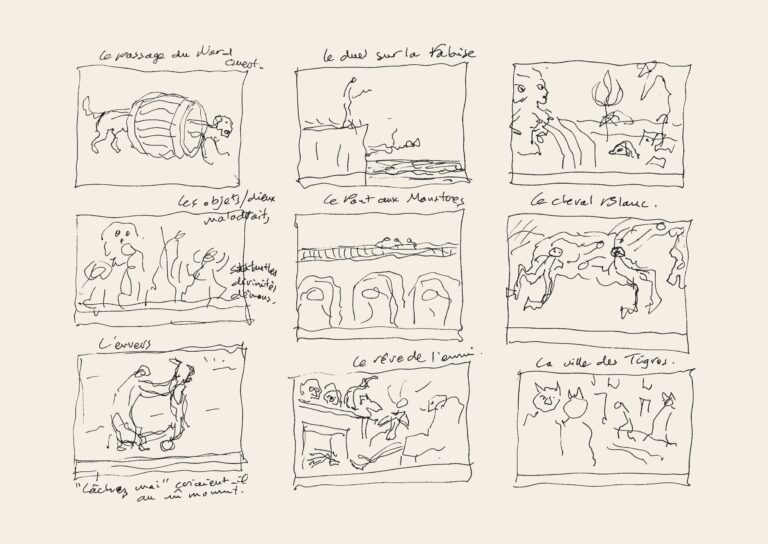 Le passage du Nord
Ouest.
Le duel sur la Falaise
Les objets/dieux
maladroits
statuettes
divinités
démons.
Le Pont aux Monstres
Le cheval Blanc.
L'envers
"Lâchez moi" criaient-il
au m moment.
Le rêve de l'ennui.
La ville des Tigres.